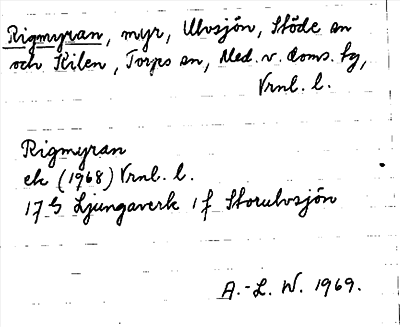 Rigmyran, myr, Ulvsjön, Stöde sn
och Kilen, Torps sn, Med. v. doms. tg,
Vrnl. l.
Rigmyran
ek (1968) Vrnl. l.
17 G Ljungaverk 1 f Storulvsjön
A.-L. W. 1969.